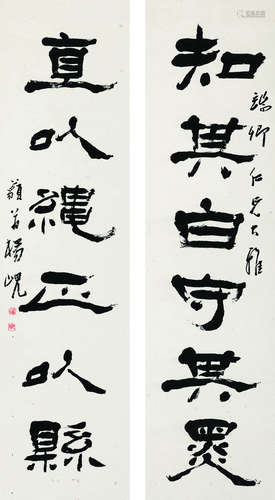 知其白守其黑
卿仁兄大雅
直以繩正以縣
藐翁楊峴